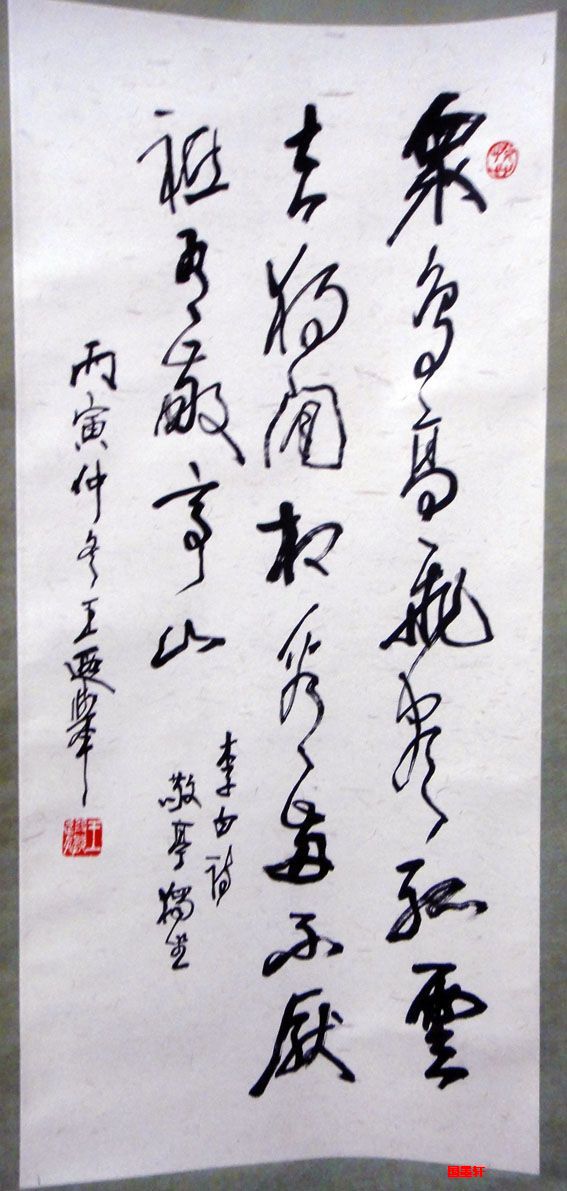 眾鳥高飛盡孤雲
去獨閒相看兩不厭
祗有敬亭山
李白詩
敬亭獨坐
丙寅仲冬王遐舉
国墨轩